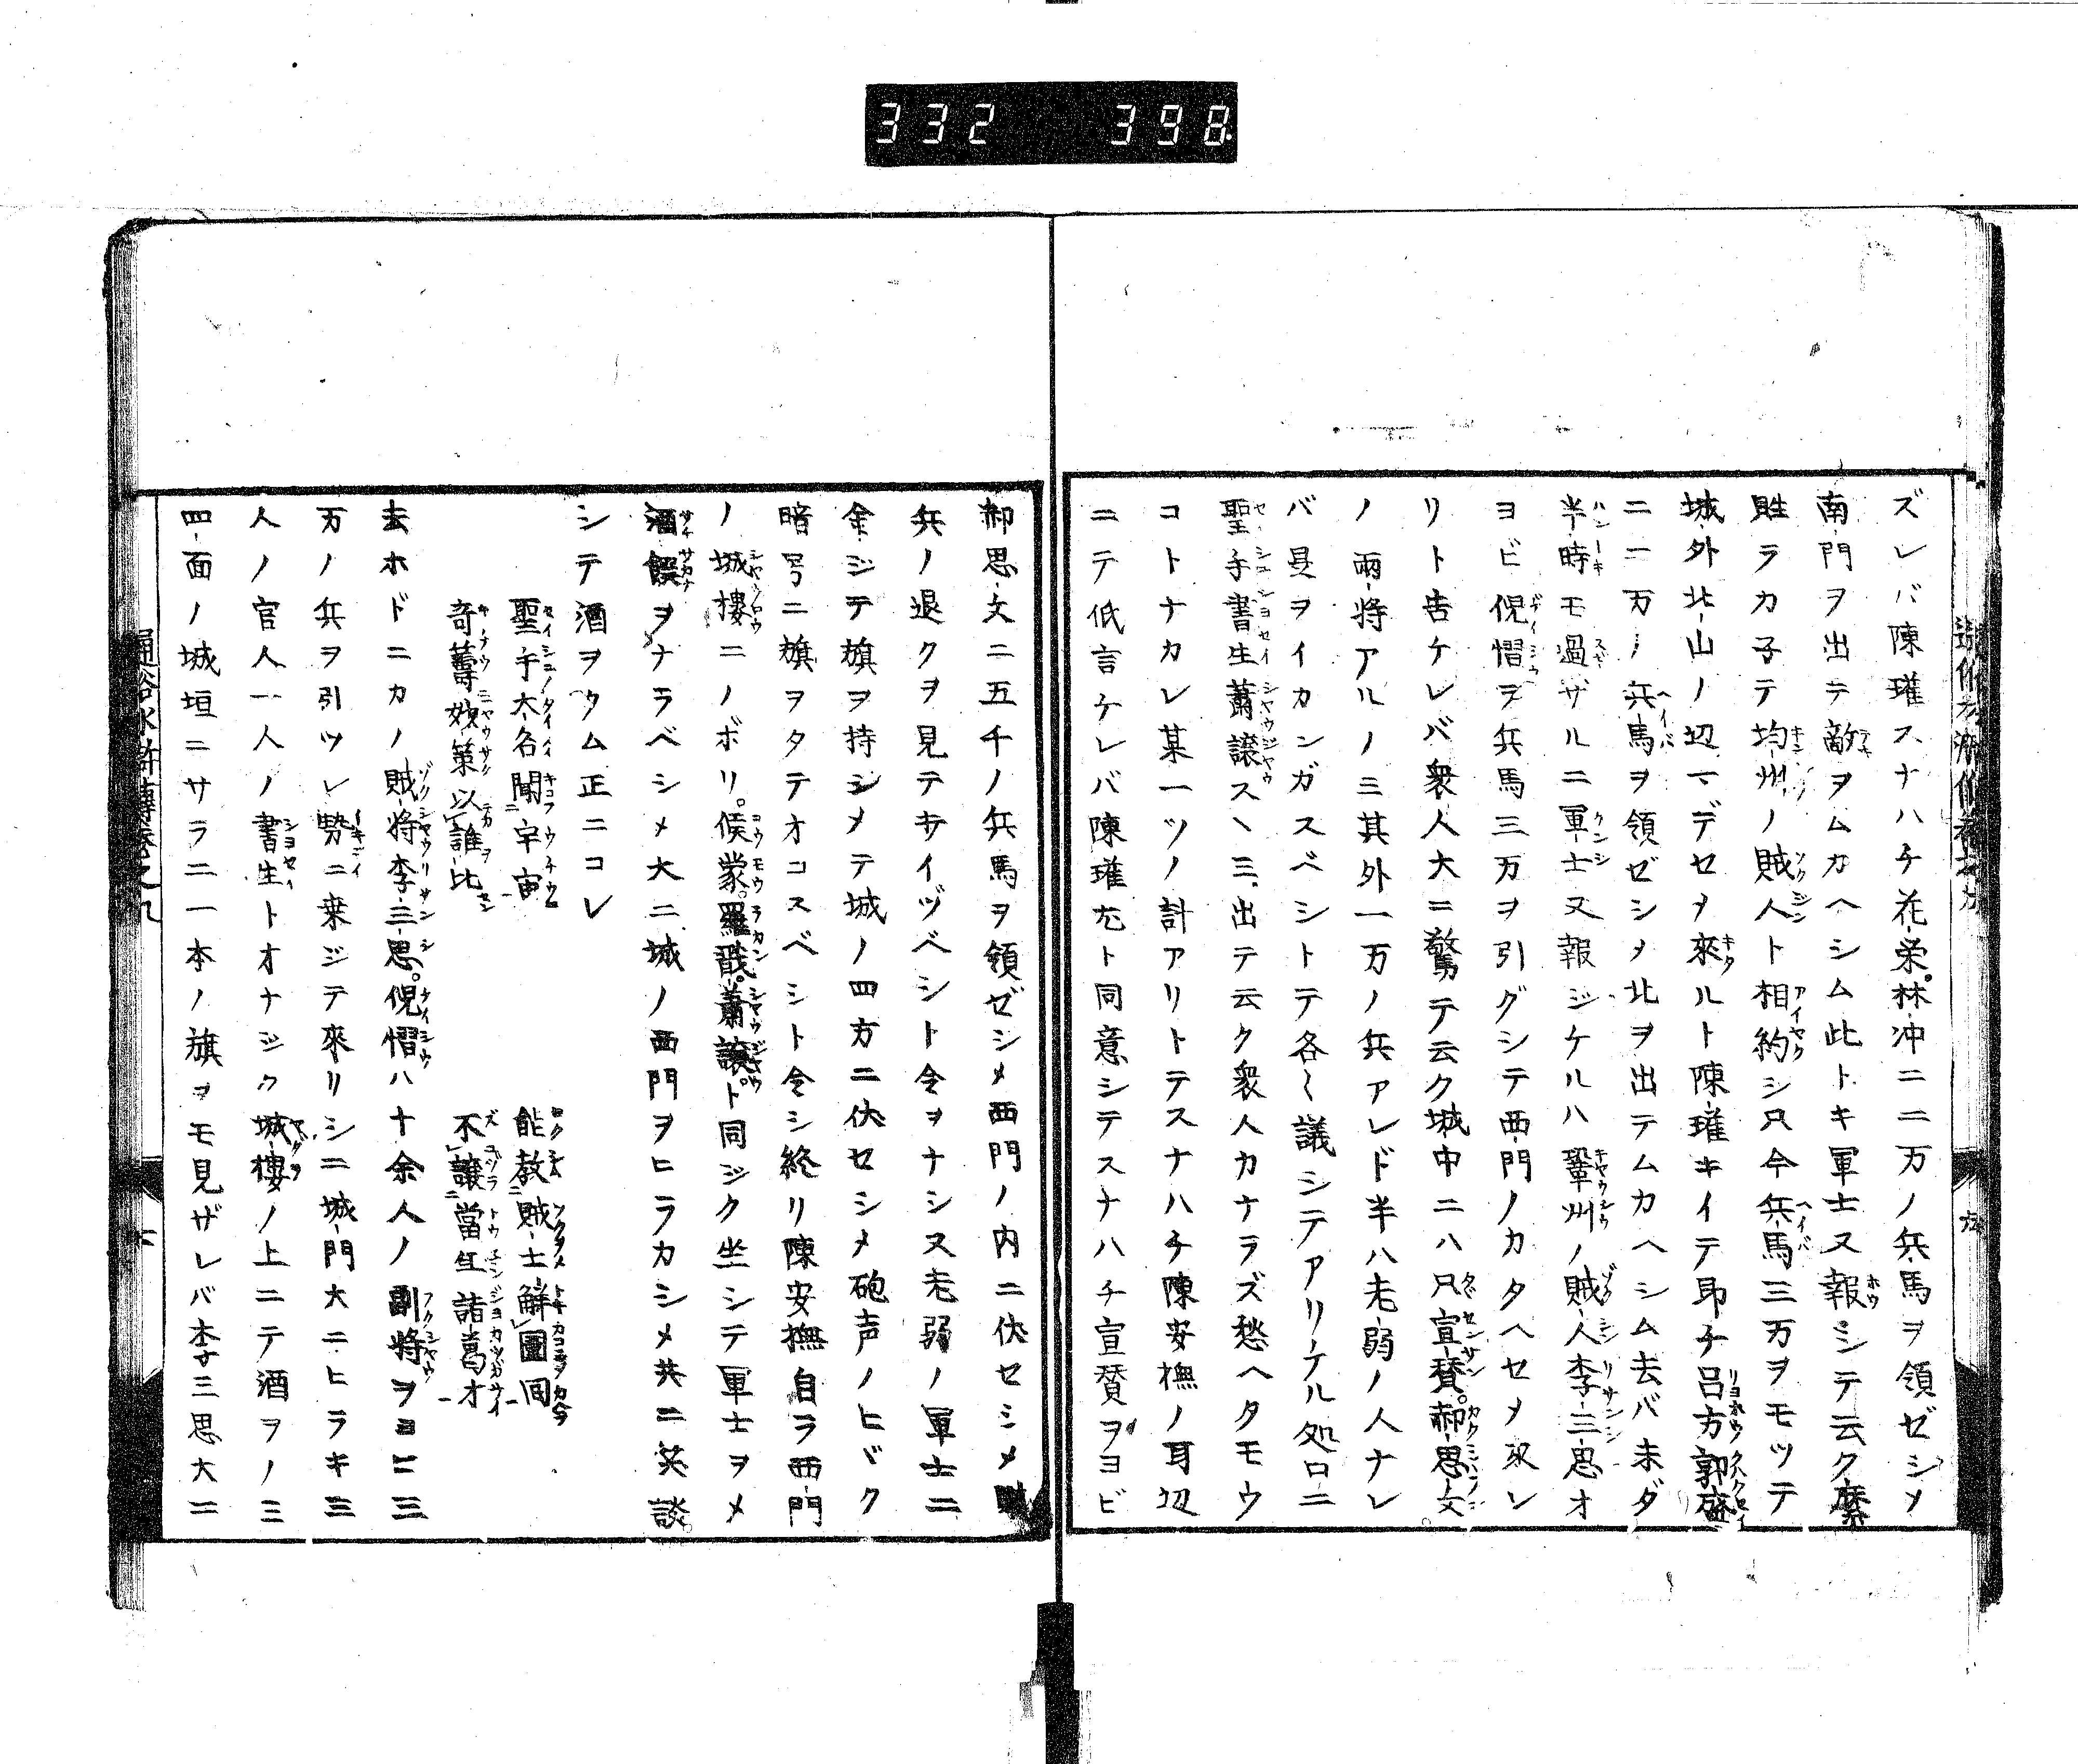 332 398
ズレバ陳瓘スナハチ花栄。林冲ニ二万ノ兵馬ヲ領ゼシメ
南門ヲ出テ敵ヲムカヘシム此トキ軍士又報シテ云ク縻
貹ラカ子テ均州ノ賊人ト相約シ只今兵馬三万ヲモツテ
城外北山ノ辺マデセメ來ルト陳瓘キイテ即チ呂方郭盛
ニ二万ノ兵馬ヲ領ゼシメ北ヲ出テムカヘシム去バ未ダ
半時モ過ザルニ軍士又報ジケルハ鞏州ノ賊人李三思オ
ヨビ倪慴ヲ兵馬三万ヲ引グシテ西門ノカタヘセメ來レ
リト告ケレバ衆人大ニ驚テ云ク城中ニハ只宣賛。郝思文
ノ兩将アルノミ其外一万ノ兵アレド半ハ老弱ノ人ナレ
バ是ヲイカンガスベシトテ各〻議シテアリケル処ロニ
聖手書生蕭譲スヽミ出テ云ク衆人カナラズ愁ヘタモウ
コトナカレ某一ツノ計アリトテスナハチ陳安撫ノ耳辺
ニテ低言ケレバ陳瓘尤ト同意シテスナハチ宣賛ヲヨビ
郝思文ニ五千ノ兵馬ヲ領ゼシメ西門ノ内ニ伏セシメ
兵ノ退クヲ見テキイヅベシト令ヲナシ又老弱ノ軍士ニ
金ジテ旗ヲ持シメテ城ノ四方ニ伏セシメ砲声ノヒバク
暗号ニ旗ヲタテオコスベシト令シ終リ陳安撫自ラ西門
ノ城樓ニノボリ。侯蒙。羅戩。蕭譲。ト同ジク坐シテ軍士ヲメ
酒饌ヲナラベシメ大ニ城ノ西門ヲヒラカシメ共ニ笑談。
シテ酒ヲクム正ニコレ
聖手大名聞宇宙 能教賊士解圍同
奇籌妙策以誰比 不譲當年諸葛才
去ホドニカノ賊将李三思。倪慴ハ十余人ノ副将ヲヨヒ三
万ノ兵ヲ引ツレ勢ニ乗ジテ來リシニ城門大ニヒラキ三
人ノ官人一人ノ書生トオナジク城樓ノ上ニテ酒ヲノミ
四面ノ城垣ニサラニ一本ノ旗ヲモ見ザレバ李三思大ニ
通俗水滸傳巻之九